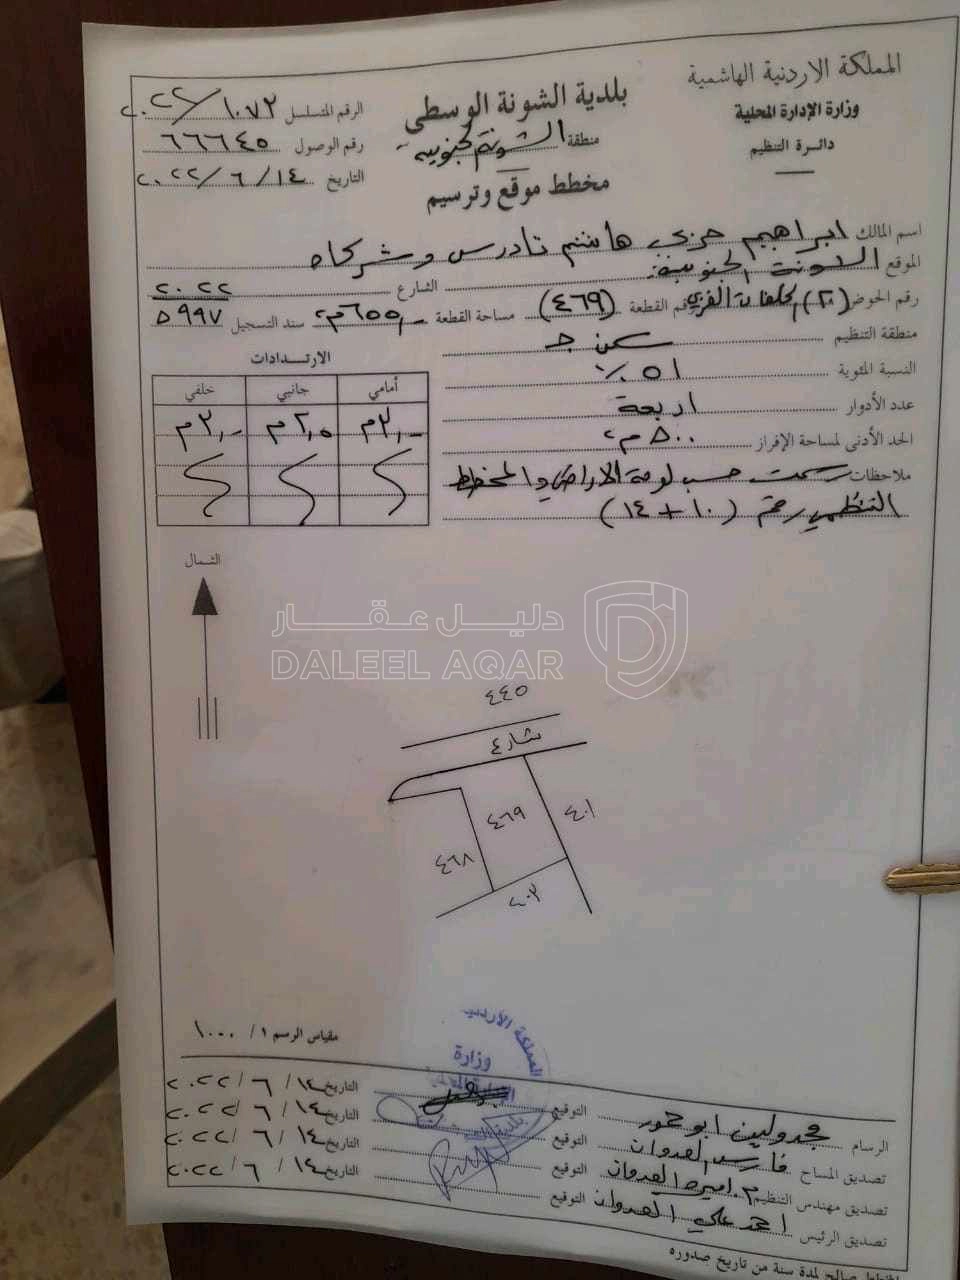 المملكة الاردنية الهاشمية
وزارة الإدارة المحلية
دائرة التنظيم
بلدية الشونة الوسطى
منطقة الشونة الجنوبية
مخطط موقع وترسيم
الرقم المتسلسل ١٠٧٢/٢٠٢٢
رقم الوصول ٦٦٦٤٥
التاريخ ١٤/٦/٢٠٢٢
اسم المالك ابراهيم حربي هاشم تادرس وشركاه
الموقع الشونة الجنوبية الشارع
رقم الحوض (٢) الحلفات الغربي رقم القطعة (٤٦٩) مساحة القطعة ٦٥٥م٢ سند التسجيل ٢٠٢٢ ٥٩٩٧
منطقة التنظيم سكن ج
النسبة المئوية ٥١٪
عدد الأدوار اربعة
الحد الأدنى لمساحة الإفراز ٥٠٠م٢
ملاحظات رسمت حسب لوحة الاراضي والمخطط
التنظيمي رقم (١٠+١٤)
الارتدادات
أمامي جانبي خلفي
٣,٠م ٢,٥م ٣,٠م
الشمال
دليل عقار
DALEEL AQAR
٤٤٥
شارع
٤٦٩
٤٠١
٤٦٨
٤٠٢
مقياس الرسم ١/١٠٠٠
المملكة الأردنية
وزارة
الرسام مجدولين ابو حمور التوقيع التاريخ ١٤/٦/٢٠٢٢
تصديق المساح فارس العدوان التوقيع التاريخ ١٤/٦/٢٠٢٢
تصديق مهندس التنظيم م. اميرة العدوان التوقيع التاريخ ١٤/٦/٢٠٢٢
تصديق الرئيس احمد علي العدوان التوقيع التاريخ ١٤/٦/٢٠٢٢
المخطط صالح لمدة سنة من تاريخ صدوره